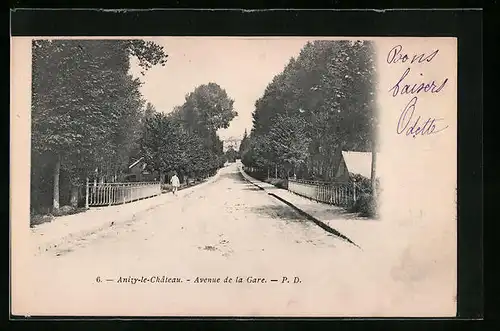 Bons
baisers
Odette
6. — Anizy-le-Château. - Avenue de la Gare. — P. D.